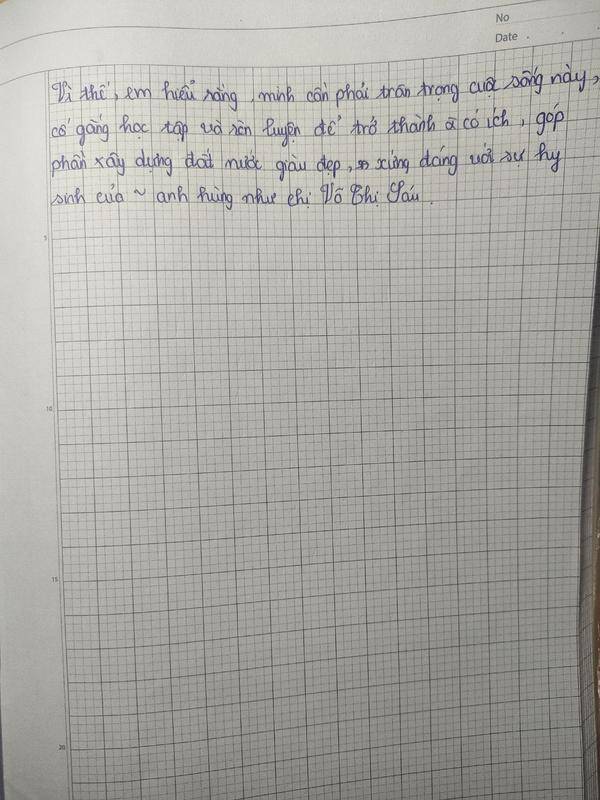 No
Date
Vì thế, em hiểu rằng, mình cần phải trân trọng cuộc sống này,
cố gắng học tập và rèn luyện để trở thành có ích, góp
phần xây dựng đất nước giàu đẹp, xứng đáng với sự hy
sinh của ~ anh hùng như chị Võ Thị Sáu.
5
10
15
20